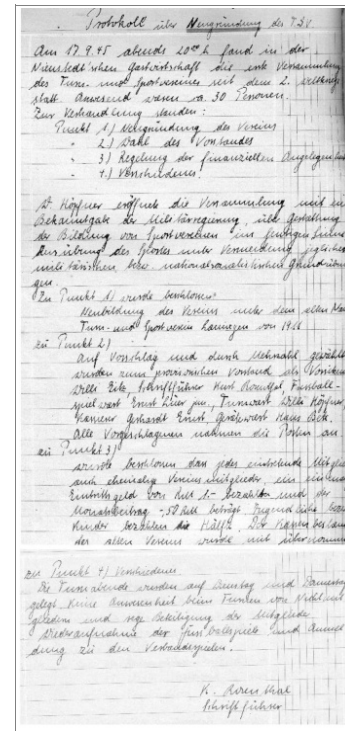 Protokoll über Neugründung des T.S.V.
Am 17.9.45 abends 20⁰⁰ h fand in der
Nienstedt'schen Gastwirtschaft die erste Versammlung
des Turn- und Sportvereines seit dem 2. Weltkrieg
statt. Anwesend waren ca. 30 Personen.
Zur Verhandlung standen:
Punkt 1.) Neugründung des Vereins
" 2.) Wahl des Vorstandes
" 3.) Regelung der finanziellen Angelegenh
" 4.) Verschiedenes.
W. Höpfner eröffnete die Versammlung mit
Bekanntgabe der Militärregierung, über Gestattung
der Bildung von Sportvereinen im
Ausübung des Sportes unter Vermeidung jeglicher
militärischen, bezw. nationalsozialistischen
gen.
Zu Punkt 1) wurde beschlossen
Neubildung des Vereins unter dem alten
Turn- und Sportverein von 1911
zu Punkt 2)
Auf Vorschlag und durch Mehrzahl gewählt
wurden zum provisorischen Vorstand als
Willi Eick, Schriftführer Kurt Rosenthal, Fussball-
spielwart Ernst jun., Turnwart Willi Höpfner,
Kassierer Gerhardt Ernst, Gerätewart Hans Eick.
Alle Vorgeschlagenen nahmen die Posten an.
zu Punkt 3)
wurde beschlossen dass jedes eintretende Mitglie
auch ehemalige Vereinsmitglieder, ein
Eintrittsgeld von RM 1.- bezahlt und der
Monatsbeitrag -,50 RM beträgt. Jugendliche bezw
Kinder bezahlen die Hälfte. Der Kassenbestand
des alten Vereins wurde mit übernomm
zu Punkt 4) Verschiedenes
Die Turnabende wurden auf Dienstag und Donnerstag
gelegt. Keine Anwesenheit beim Turnen von Nichtmit-
gliedern und rege Beteiligung der Mitglieder.
Wiederaufnahme der Fussballspiele und Anmel-
dung zu den Verbandsspielen.
K. Rosenthal
Schriftführer